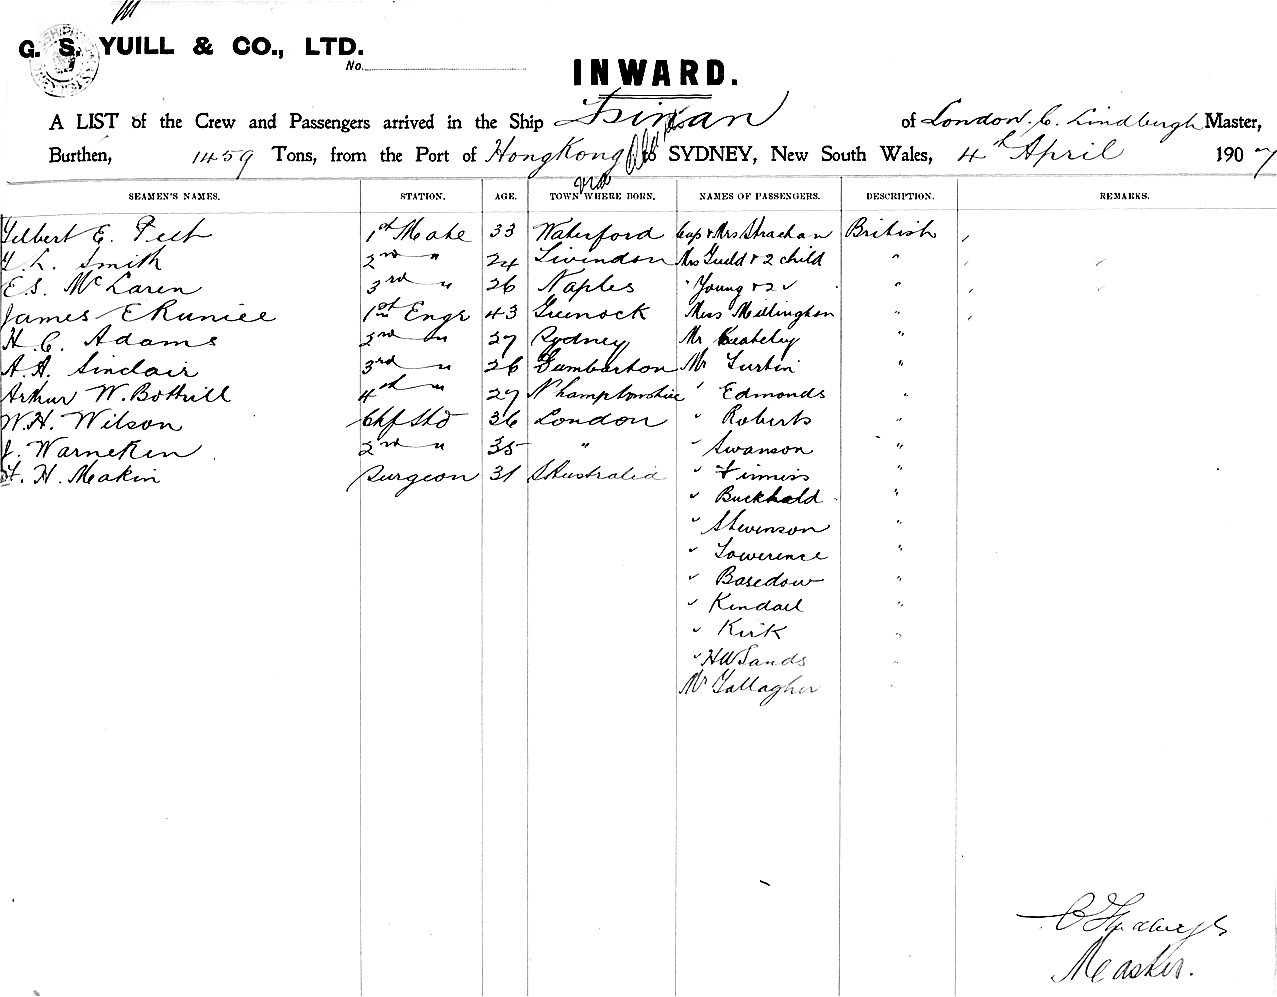 G. S. YUILL & CO., LTD.
No.
INWARD.
A LIST of the Crew and Passengers arrived in the Ship Tsinan of London. C. Lindbergh Master,
Burthen, 1459 Tons, from the Port of HongKong via to SYDNEY, New South Wales, 4th April 1907
SEAMEN'S NAMES. STATION. AGE. TOWN WHERE BORN. NAMES OF PASSENGERS. DESCRIPTION. REMARKS.
Gilbert E. Peet 1st Mate 33 Waterford Cap & Mrs Strachan British
Smith 2nd " 24 Mrs Guild & 2 child "
E.S. McLaren 3rd " 26 Naples " Young & 2 " "
James 1st Engr 43 Greenock Miss Millington "
H. C. Adams 2nd " 27 Sydney Mr "
A. A. Sinclair 3rd " 26 Dumbarton Mr "
Arthur W. Bottrill 4th " 27 N'hamptonshire " Edmonds "
W. H. Wilson Chf Std 36 London " Roberts "
J. Warneken 2nd " 35 " " Swanson "
H. Meakin Surgeon 31 S Australia " Finniss "
" Buckhold "
" Stevenson "
" Lowerence "
" Basedow "
" Kendall "
" Kirk "
" HW Sands "
Mr Gallagher "
C Lindbergh
Master.